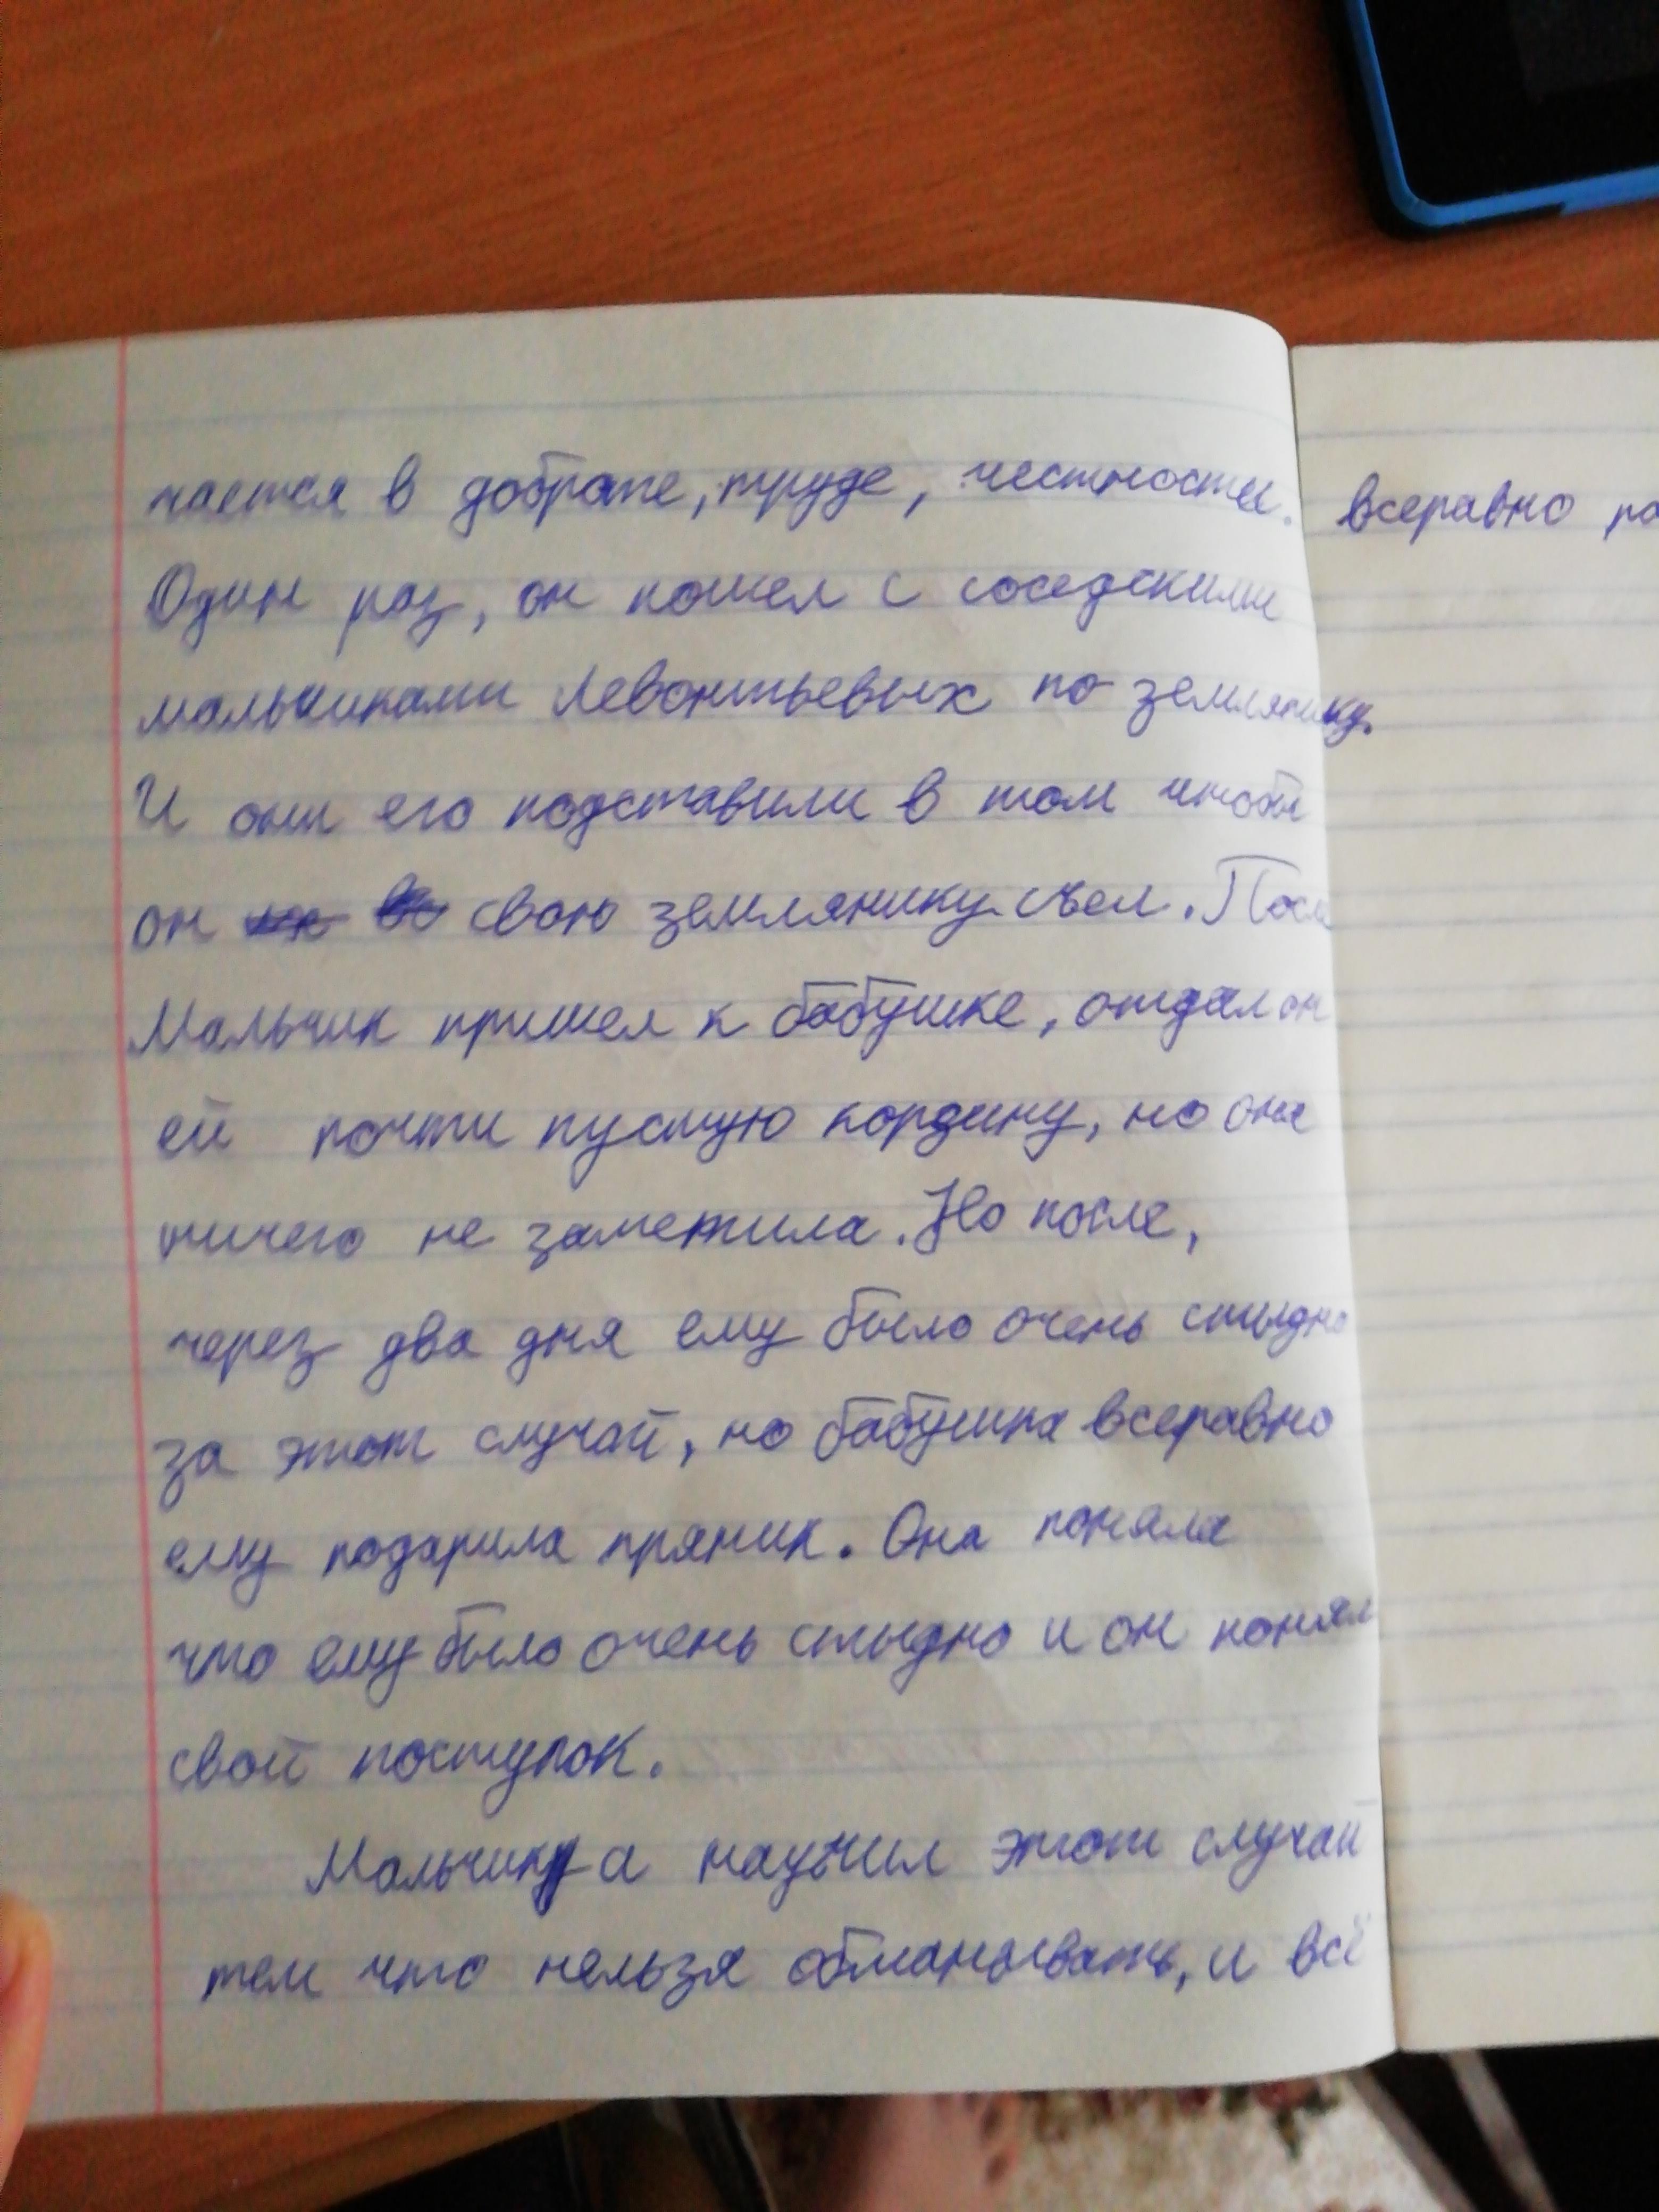 чается в доброте, труде, честности.
Один раз, он пошел с соседскими
мальчиками Левонтьевых по землянику.
И они его подставили в том чтобы
он свою землянику съел. После
Мальчик пришел к бабушке, отдал он
ей почти пустую кордину, но она
ничего не заметила. Но после,
через два дня ему было очень стыдно
за этот случай, но бабушка всеравно
ему подарила пряник. Она поняла
что ему было очень стыдно и он понял
свой поступок.
Мальчика научил этот случай
тем что нельзя обманывать, и всё
всеравно ра